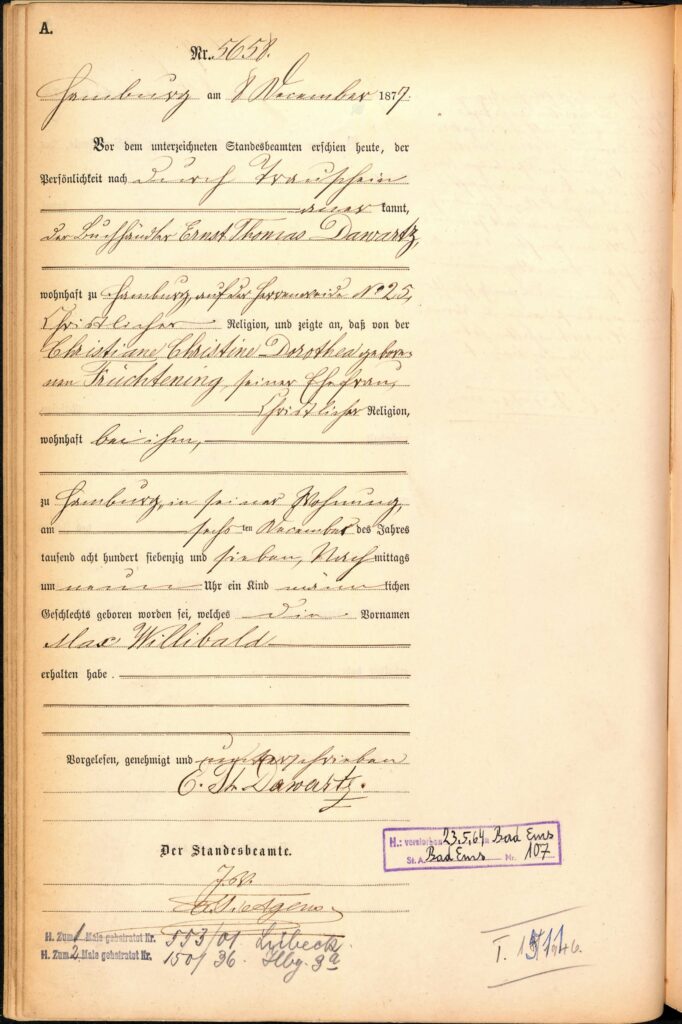 A.
Nr. 5658.
Hamburg am 8 December 1877.
Vor dem unterzeichneten Standesbeamten erschien heute, der
Persönlichkeit nach durch Trauschein
aner kannt,
der Buchhändler Ernst Thomas Dawartz,
wohnhaft zu Hamburg, auf der Herrenweide No 25,
Christlicher Religion, und zeigte an, daß von der
Christiane Christine Dorothea gebore-
nen Früchtening, seiner Ehefrau,
Christlicher Religion,
wohnhaft bei ihm,
zu Hamburg, in seiner Wohnung,
am sechs ten December des Jahres
tausend acht hundert siebenzig und sieben, Nach mittags
um neun Uhr ein Kind männ lichen
Geschlechts geboren worden sei, welches die Vornamen
Max Willibald
erhalten habe.
Vorgelesen, genehmigt und unterschrieben
E. Th. Dawartz.
Der Standesbeamte.
H.: verstorben 23.5.64 Bad Ems
St. A. Bad Ems Nr. 107
H. Zum 1 Male geheiratet Nr. 553/01 Lübeck
H. Zum 2 Male geheiratet Nr. 150/36. Hbg. 3a